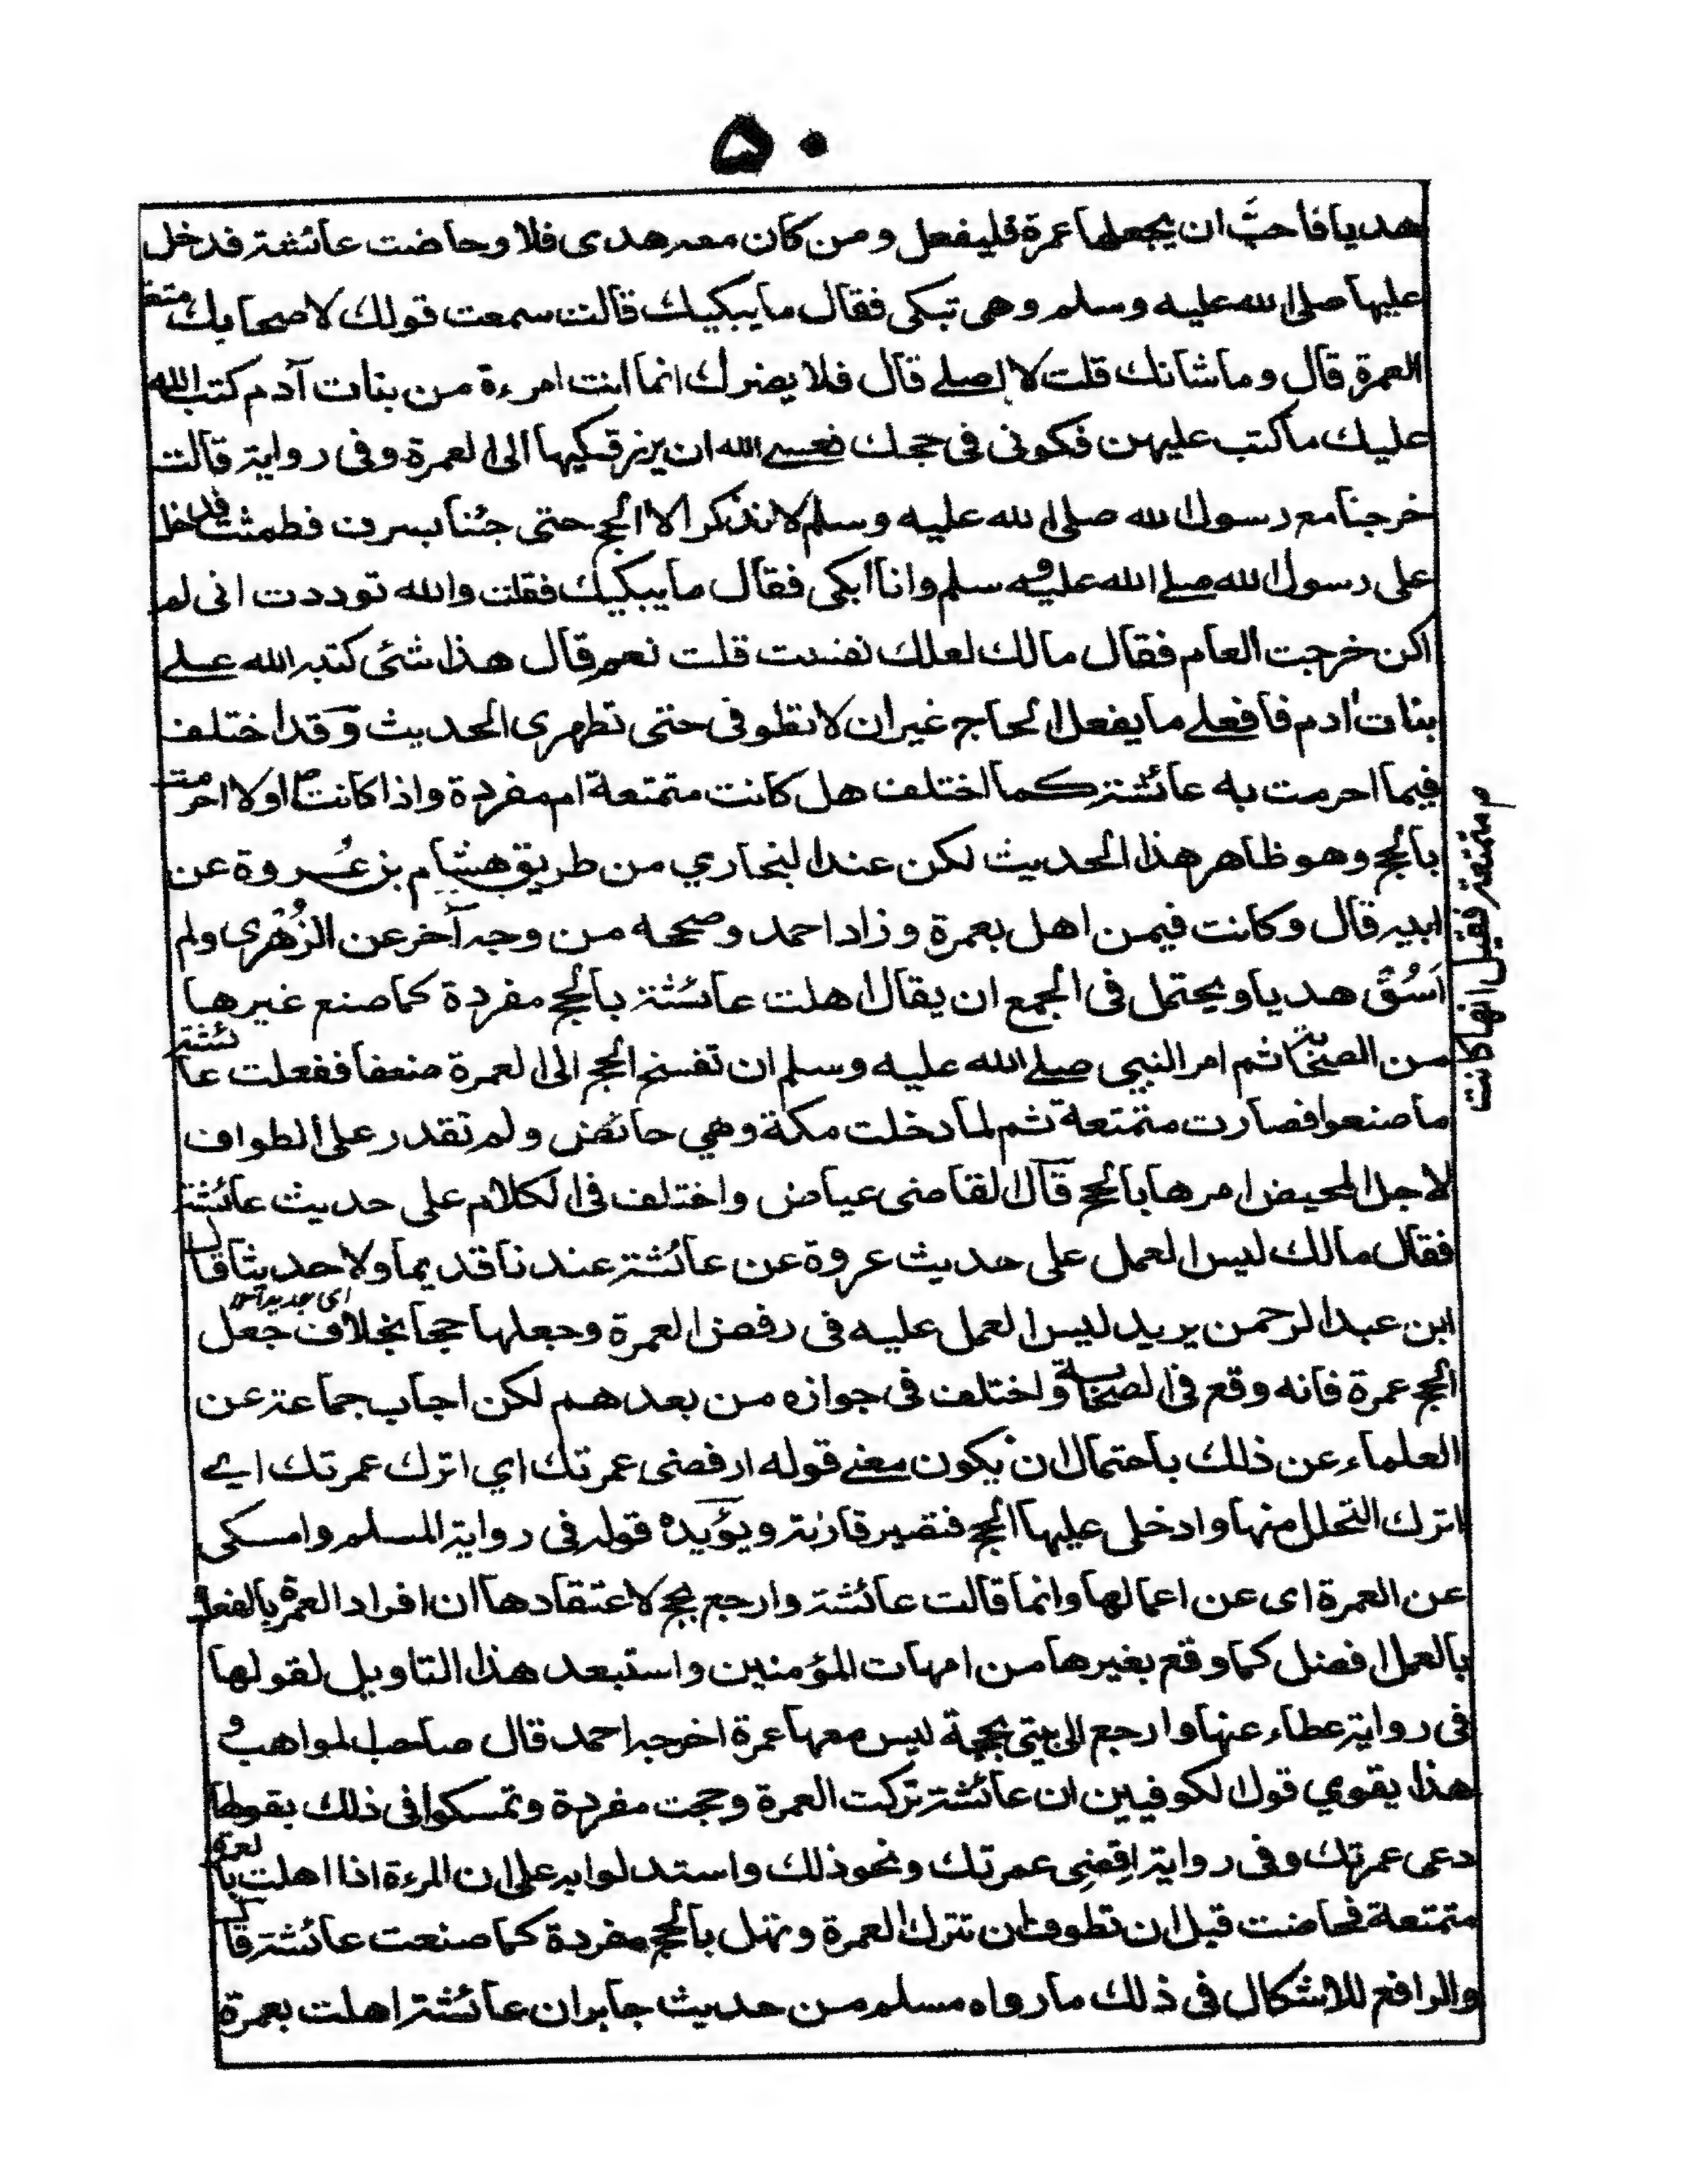 ۵۰
هديا فاحبَّ ان يجعلها عمرة فليفعل ومن كان معه هدى فلا وحاضت عائشة فدخل
عليها صلى الله عليه وسلم وهى تبكى فقال ما يبكيك قالت سمعت قولك لاصحابك متعة
العمرة قال وما شانك قلت لا اصلے قال فلا يضرك انما انت امرءة من بنات آدم كتب الله
عليك ما كتب عليهن فكونى فى حجك فعسے الله ان يرزقكيها الى العمرة وفى رواية قالت
خرجنا مع رسول الله صلى الله عليه وسلم لا نذكر الا الحج حتى جئنا بسرف فطمثت فدخل
على رسول الله صلے الله عليه وسلم وانا ابكى فقال ما يبكيك فقلت والله توددت انى لم
اكن خرجت العام فقال مالك لعلك نفست قلت نعم قال هذا شئى كتبه الله علے
بنات ادم فافعلے ما يفعل الحاج غير ان لا تطوفى حتى تطهرى الحديث وقد اختلف
فيما احرمت به عائشة كما اختلف هل كانت متمتعة ام مفردة واذا كانت اولا احرمت
بالحج وهو ظاهر هذا الحديث لكن عند البخاري من طريق هشام بن عُروة عن
ابيه قال وكانت فيمن اهل بعمرة وزاد احمد وصححه من وجه آخر عن الزُهْرى ولم
اَسُقْ هديا ويحتمل فى الجمع ان يقال اهلت عائشة بالحج مفردة كما صنع غيرها
من الصحابة ثم امر النبي صلے الله عليه وسلم ان تفسخ الحج الى العمرة ففعلت عائشة
ما صنعوا فصارت متمتعة ثم لما دخلت مكة وهي حائض ولم تقدر على الطواف
لاجل المحيض امرها بالحج قال القاضى عياض واختلف فى الكلام على حديث عائشة
فقال مالك ليس العمل على حديث عروة عن عائشة عندنا قديما ولا حديثا قال
ابن عبد الرحمن يريد ليس العمل عليه فى رفض العمرة وجعلها حجا بخلاف جعل
الحج عمرة فانه وقع فى الصحابة واختلف فى جوازه من بعدهم لكن اجاب جماعة عن
العلماء عن ذلك باحتمال ان يكون معنے قوله ارفضى عمرتك اي اترك عمرتك اے
اترك التحلل منها وادخلى عليها الحج فتصير قارنة ويؤيده قوله فى رواية المسلم وامسكى
عن العمرة اى عن اعمالها وانما قالت عائشة وارجع بحج لاعتقادها ان افراد العمرة بالفعل
بالعمل افضل كما وقع بغيرها من امهات المؤمنين واستبعد هذا التاويل لقولها
فى رواية عطاء عنها وارجع الى بيتى بحجة ليس معها عمرة اخرجه احمد قال صاحب المواهب و
هذا يقوي قول الكوفيين ان عائشة تركت العمرة وحجت مفردة وتمسكوا فى ذلك بقولها
دعى عمرتك وفى رواية اقضِى عمرتك ونحو ذلك واستدلوا به على ان المرءة اذا اهلت بالعمرة
متمتعة فحاضت قبل ان تطوف ان تترك العمرة وتهل بالحج مفردة كما صنعت عائشة قال
والرافع للاشكال فى ذلك ما رواه مسلم من حديث جابر ان عائشة اهلت بعمرة
متمتعة فقيل انها كانت